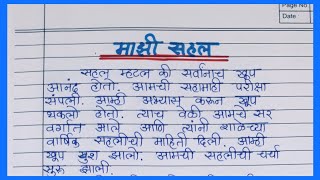 Page No
Date
माझी सहल
सहल म्हटलं की सर्वानाच खूप
आनंद होतो. आमची सहामाही परीक्षा
संपली. आम्ही अभ्यास करून खूप
थकलो होतो. त्याच वेळी आमचे सर
वर्गात आले आणि त्यांनी शाळेच्या
वार्षिक सहलीची माहिती दिली. आम्ही
खूप खुश झालो. आमची सहलीची चर्चा
सुरू झाली.